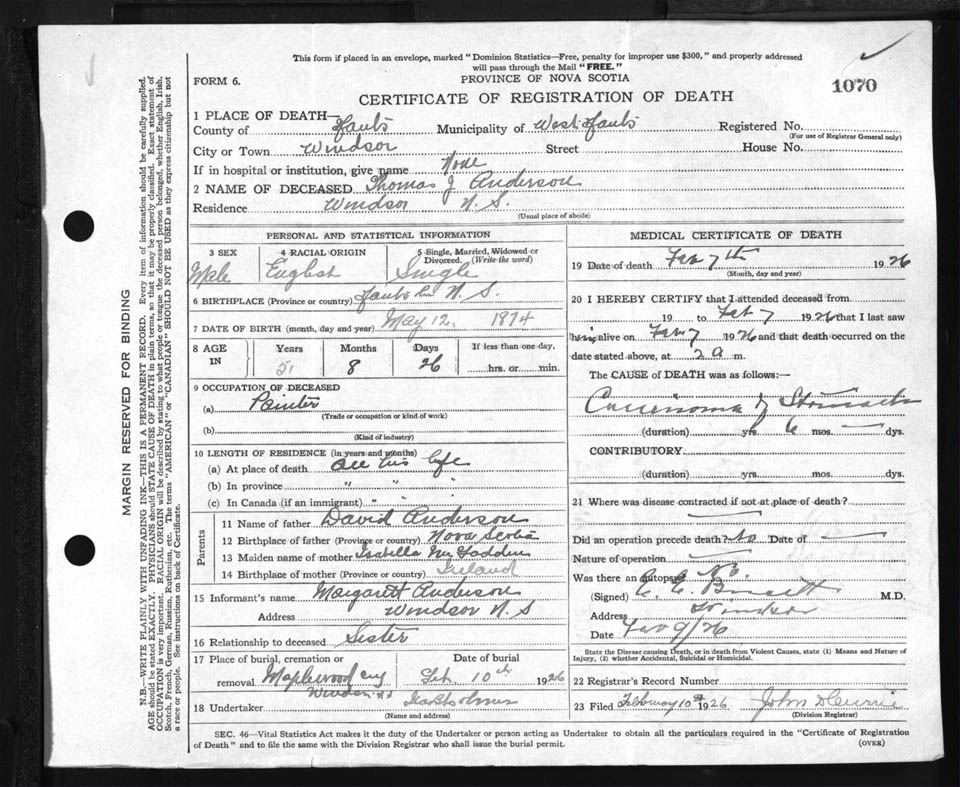 This form if placed in an envelope, marked "Dominion Statistics—Free, penalty for improper use $300," and properly addressed
will pass through the Mail "FREE."
FORM 6.
PROVINCE OF NOVA SCOTIA
1070
CERTIFICATE OF REGISTRATION OF DEATH
1 PLACE OF DEATH—
County of Hants Municipality of West Hants Registered No.
(For use of Registrar General only)
City or Town Windsor Street House No.
If in hospital or institution, give name None
2 NAME OF DECEASED Thomas J Anderson
Residence Windsor N.S.
(Usual place of abode)
PERSONAL AND STATISTICAL INFORMATION
3 SEX 4 RACIAL ORIGIN 5 Single, Married, Widowed or
Divorced. (Write the word)
Male English Single
6 BIRTHPLACE (Province or country) Hants Co N.S.
7 DATE OF BIRTH (month, day and year) May 12, 1874
8 AGE IN Years Months Days If less than one day,
51 8 26 hrs. or min.
9 OCCUPATION OF DECEASED
(a) Painter
(Trade or occupation or kind of work)
(b)
(Kind of industry)
10 LENGTH OF RESIDENCE (in years and months)
(a) At place of death all his life
(b) In province " " "
(c) In Canada (if an immigrant) " " "
Parents
11 Name of father David Anderson
12 Birthplace of father (Province or country) Nova Scotia
13 Maiden name of mother Isabella McFadden
14 Birthplace of mother (Province or country) Ireland
15 Informant's name Margarett Anderson
Address Windsor N S
16 Relationship to deceased Sister
17 Place of burial, cremation or Date of burial
removal Maplewood Cmy Feb 10th 1926
Windsor NS
18 Undertaker
(Name and address)
MEDICAL CERTIFICATE OF DEATH
19 Date of death Feb 7th 1926
(Month, day and year)
20 I HEREBY CERTIFY that I attended deceased from
19 to Feb 7 1926 that I last saw
him alive on Feb 7 1926 and that death occurred on the
date stated above, at 2 a m.
The CAUSE of DEATH was as follows:—
Carcinoma of Stomach
(duration) yrs. 6 mos. — dys.
CONTRIBUTORY
(duration) yrs. mos. dys.
21 Where was disease contracted if not at place of death?
—
Did an operation precede death? No Date of —
Nature of operation —
Was there an autopsy? No.
(Signed) M.D.
Address Windsor
Date Feb 9/26
State the Disease causing Death, or in death from Violent Causes, state (1) Means and Nature of
Injury, (2) whether Accidental, Suicidal or Homicidal.
22 Registrar's Record Number
23 Filed February 10th 1926 John D Currie
(Division Registrar)
SEC. 46—Vital Statistics Act makes it the duty of the Undertaker or person acting as Undertaker to obtain all the particulars required in the "Certificate of Registration
of Death" and to file the same with the Division Registrar who shall issue the burial permit.
(OVER)
MARGIN RESERVED FOR BINDING
N.B.—WRITE PLAINLY WITH UNFADING INK—THIS IS A PERMANENT RECORD. Every item of information should be carefully supplied.
AGE should be stated EXACTLY. PHYSICIANS should STATE CAUSE OF DEATH in plain terms, so that it may be properly classified. Exact statement of
OCCUPATION is very important. RACIAL ORIGIN will be described by stating to what people or tongue the deceased person belonged, whether English, Irish,
Scotch, French, German, Russian, Ruthenian, etc. The terms "AMERICAN" or "CANADIAN" SHOULD NOT BE USED as they express citizenship but not
a race or people. See instructions on back of Certificate.